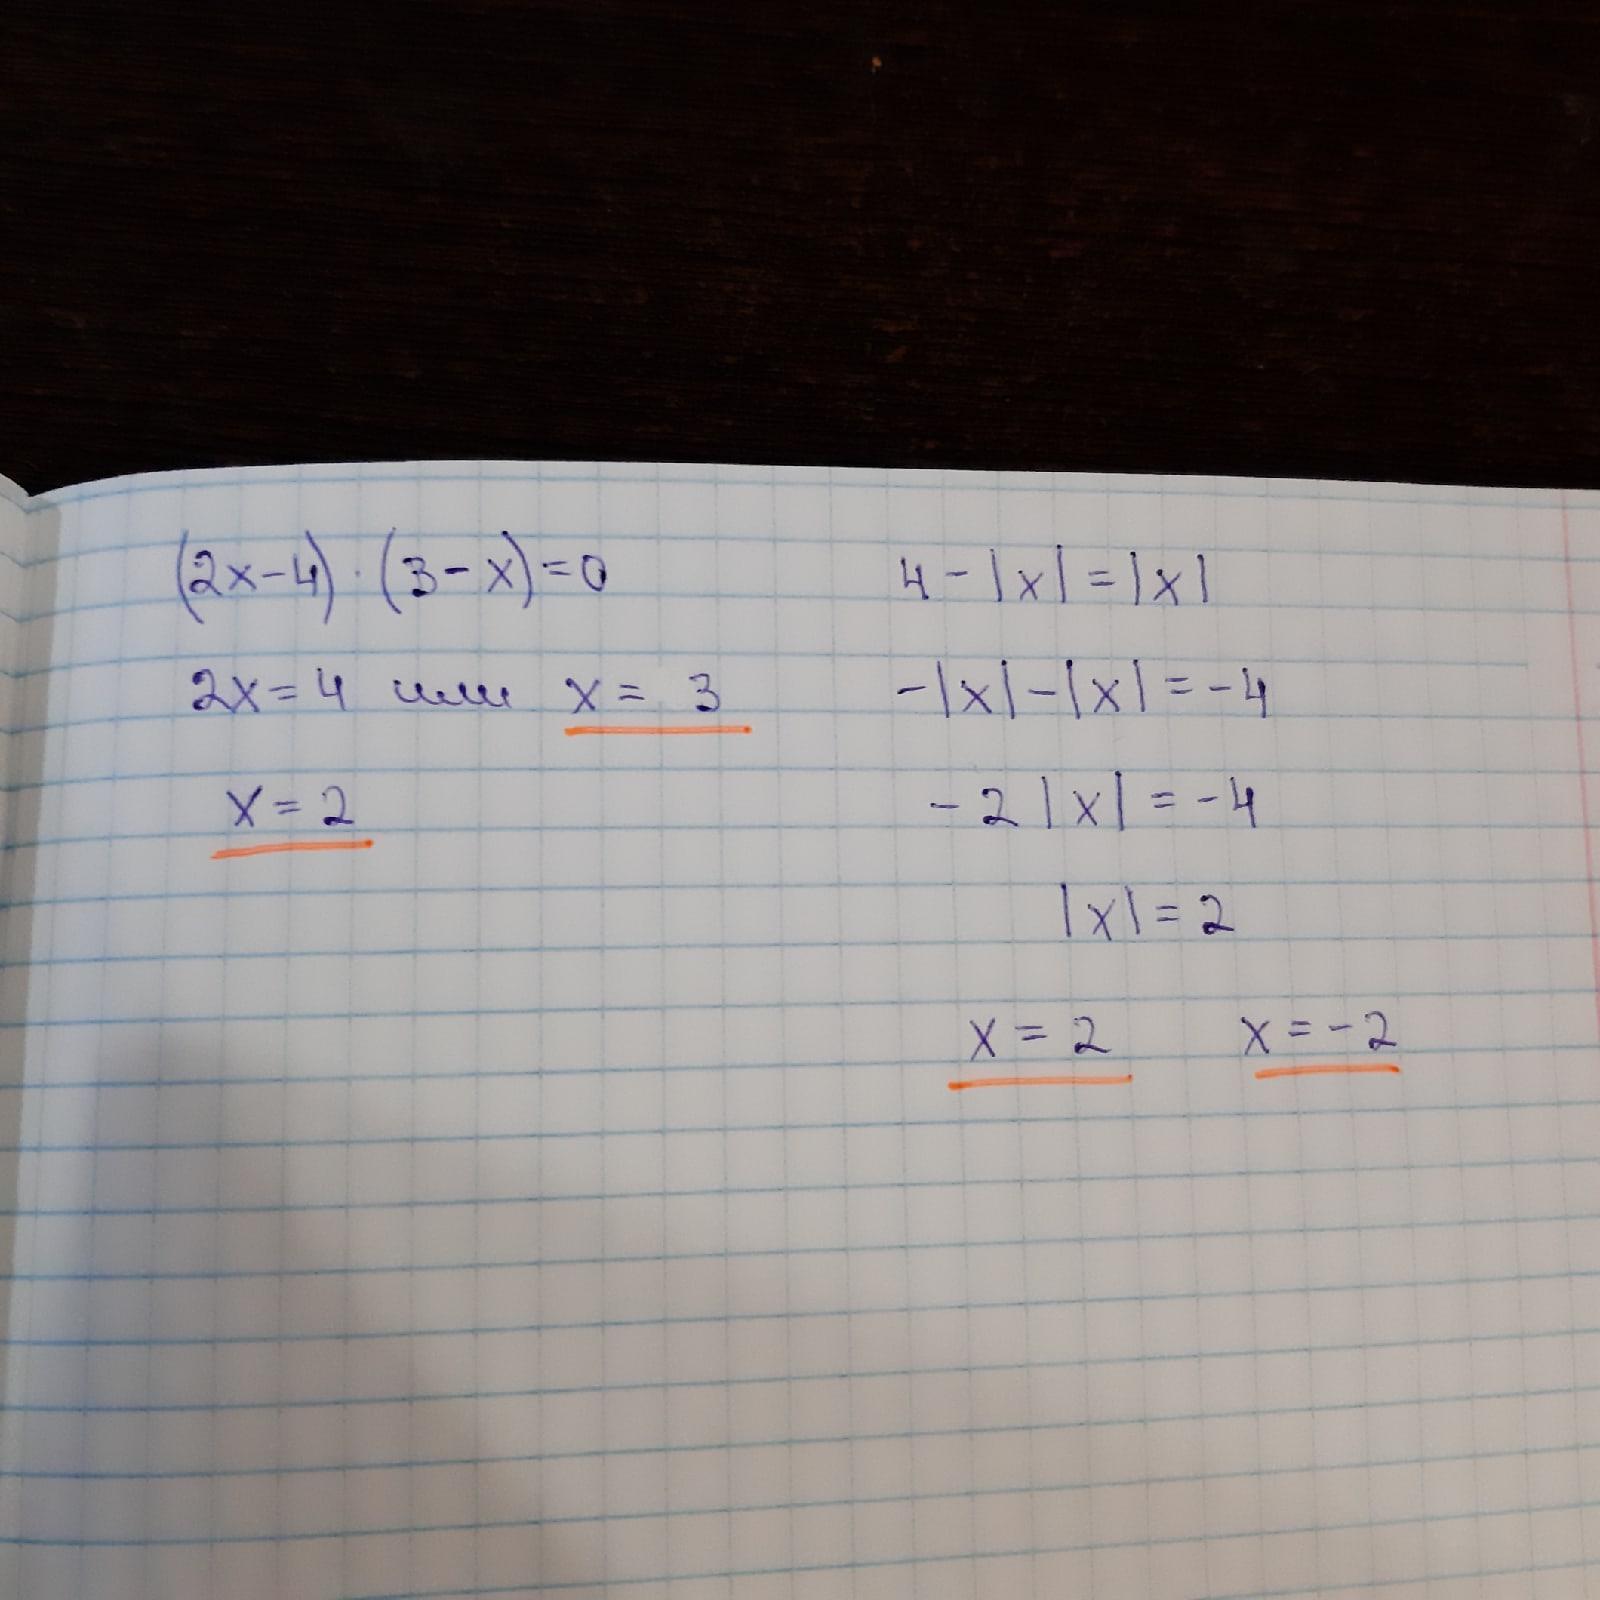 (2x-4)·(3-x)=0
2x=4 или x= 3
x=2
4-|x|=|x|
-|x|-|x|=-4
-2|x|=-4
|x|=2
x=2 x=-2